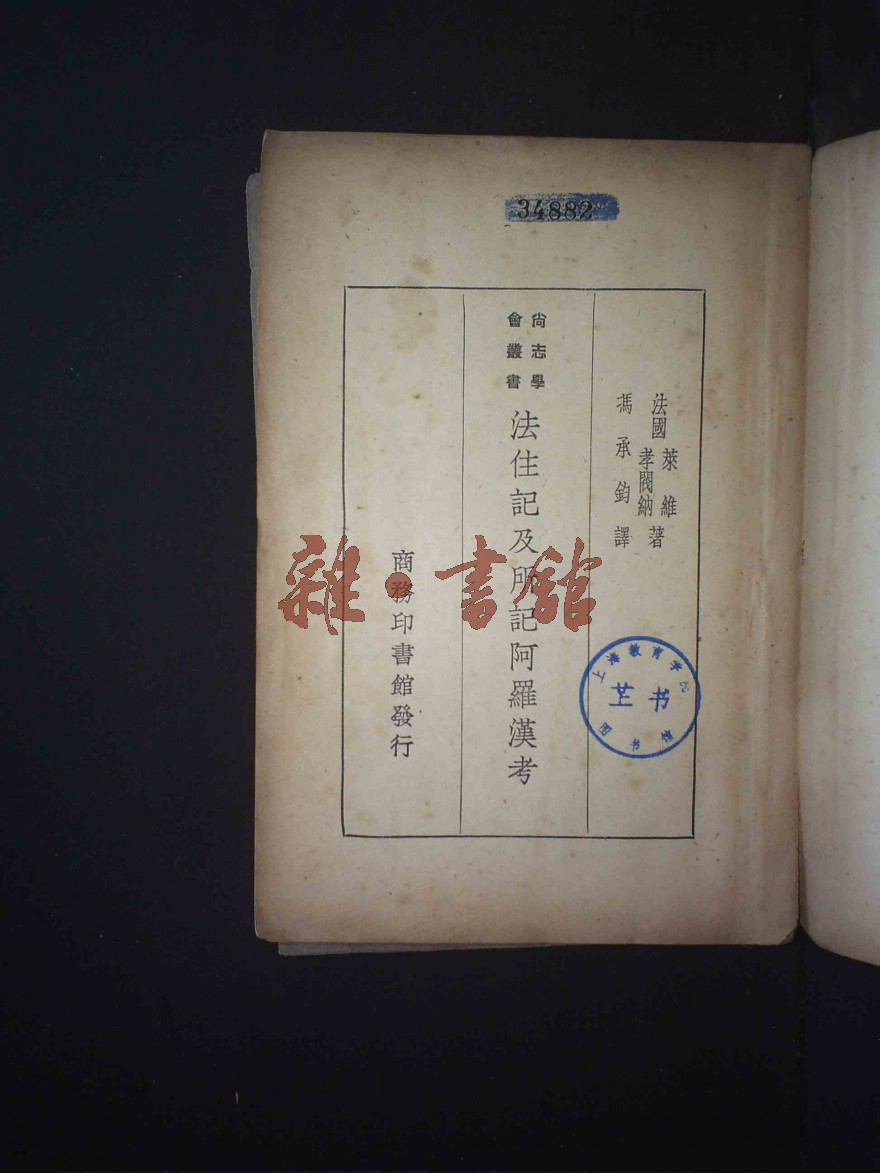 34882
法國 萊維 孝閥納 著
馮承鈞譯
尚志學會叢書
法住記及所記阿羅漢考
商務印書館發行
雜·書館
上海教育学
图书馆
书